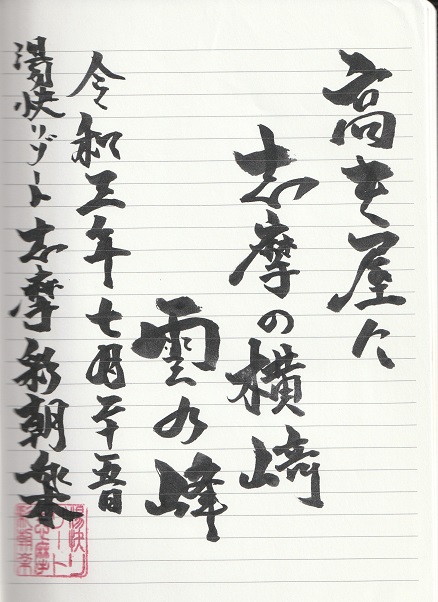 高き屋に
志摩の横﨑
雲の峰
令和三年七月二十五日
湯快リゾート志摩彩朝楽
湯快リ
ゾート志摩
彩朝楽